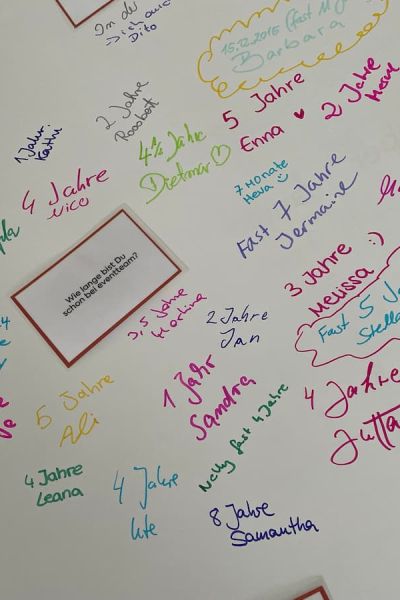 15.12.2015
Barbara
1 Jahr.
Kathi
2 Jahre
4½ Jahre
Dietmar
5 Jahre
Enna
2 Jahre
4 Jahre
Nico
7 Monate
Fast 7 Jahre
Jermaine
Wie lange bist Du
schon bei eventteam?
3 Jahre :)
Melissa
3,5 Jahre
Martina
2 Jahre
Jan
Fast 5 Ja
Stella
1 Jahr
Sandra
4 Jahre
Jutta
5 Jahre
Ali
Nelly fast 4 Jahre
4 Jahre
Leana
4 Jahre
Ute
8 Jahre
Samantha